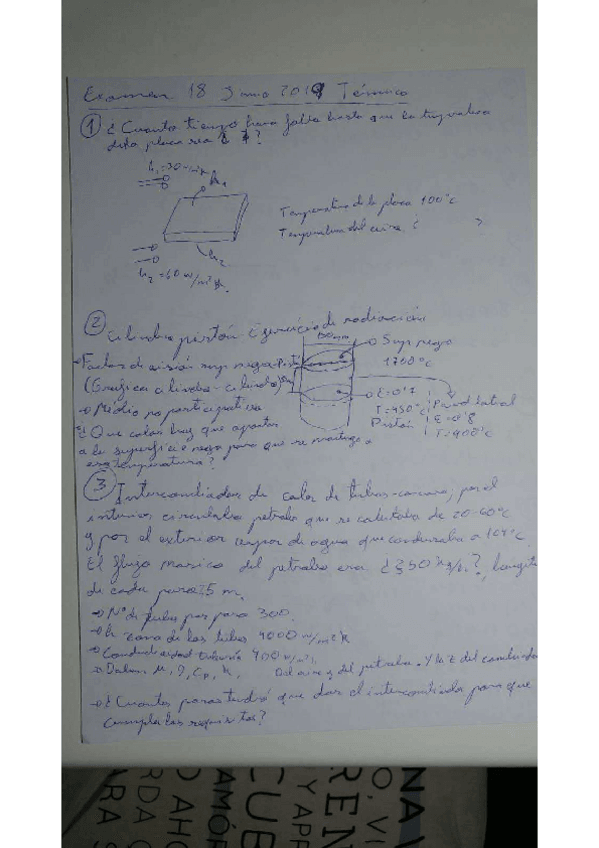 Examen 18 Junio 2019 Térmica
① ¿Cuanto tiempo hará falta hasta que la temperatura
de la placa sea ?
h₁=30 w/m²k
h₂=60 w/m²k.
Temperatura de la placa 100°C
Temperatura del aire ¿ ?
② Cilindro pistón Ejercicio de radiación
→ Factor de visión sup negra-pistón
(Grafica cilindro-cilindro)
→ Medio no participativo
¿Que calor hay que aportar
a la superficie negra para que se mantenga a
esa temperatura?
150mm
Sup negra
1700°C
ε=0'7
T=450°C
Pistón
Pared lateral
ε=0'8
T=900°C
③ Intercambiador de calor de tubos-carcasa, por el
interior circulaba petroleo que se calentaba de 20-60°C
y por el exterior vapor de agua que condensaba a 104°C
El flujo masico del petroleo era ¿350 kg/s?, longitud
de cada paso 5 m.
→ Nº de tubos por paso 300.
→ h zona de los tubos 4000 w/m²k
→ Conductividad tubería 400 w/m
→ Daban, μ, ρ, Cp, K, del petroleo. Y la z del
→ ¿Cuantos pasos tendrá que dar el intercambiador para que
cumpla los requisitos?
O, VI
NA
Y APR
REN
CUB
AMÓR
O AHO
RDA
ARA S